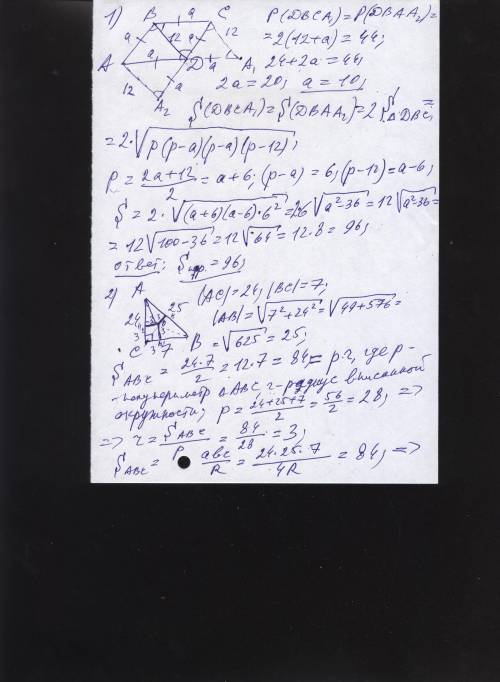 1) B a C
a 12 a 12
A a D A₁
12 a
A₂
P(DBCA₁)=P(DBAA₂)=
=2(12+a)=44;
24+2a=44;
2a=20; a=10;
S(DBCA₁)=S(DBAA₂)=2S△DBC=
=2·√p(p-a)(p-a)(p-12);
p=(2a+12)/2=a+6; (p-a)=6; (p-12)=a-6;
S=2·√(a+6)(a-6)·6²=2·6√a²-36=12√a²-36=
=12√100-36=12√64=12·8=96;
ответ: Sпр.=96;
2) A
24 25
3
C 3 7 B
|AC|=24; |BC|=7;
|AB|=√7²+24²=√49+576=
=√625=25;
SABC=24·7/2=12·7=84=p·r, где p-
-полупериметр △ABC, r-радиус вписанной
окружности; p=(24+25+7)/2=56/2=28; =>
=> r=SABC/p=84/28=3;
SABC=abc/R=24·25·7/4R=84; =>